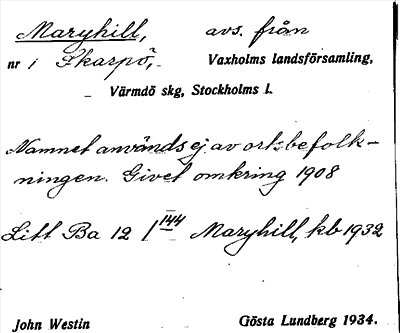 Maryhill, avs. från
nr i Skarpö, Vaxholms landsförsamling,
Värmdö skg, Stockholms l.
Namnet användes ej av ortsbefolk-
ningen. Givet omkring 1908
Litt Ba 12 1/144 Maryhill, kb 1932
John Westin Gösta Lundberg 1934.